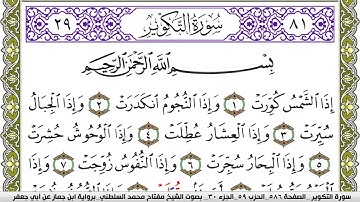 ٨١ سُورَةُ التَّكْوِيرِ ٢٩
بِسْمِ اللَّهِ الرَّحْمَٰنِ الرَّحِيمِ
إِذَا الشَّمْسُ كُوِّرَتْ ١ وَإِذَا النُّجُومُ انكَدَرَتْ ٢ وَإِذَا الْجِبَالُ
سُيِّرَتْ ٣ وَإِذَا الْعِشَارُ عُطِّلَتْ ٤ وَإِذَا الْوُحُوشُ حُشِرَتْ
٥ وَإِذَا الْبِحَارُ سُجِّرَتْ ٦ وَإِذَا النُّفُوسُ زُوِّجَتْ ٧ وَإِذَا
سورة التكوير . الصفحة ٥٨٦ . الحزب ٥٩ . الجزء ٣٠ . بصوت الشيخ مفتاح محمد السلطني . برواية ابن جماز عن أبي جعفر